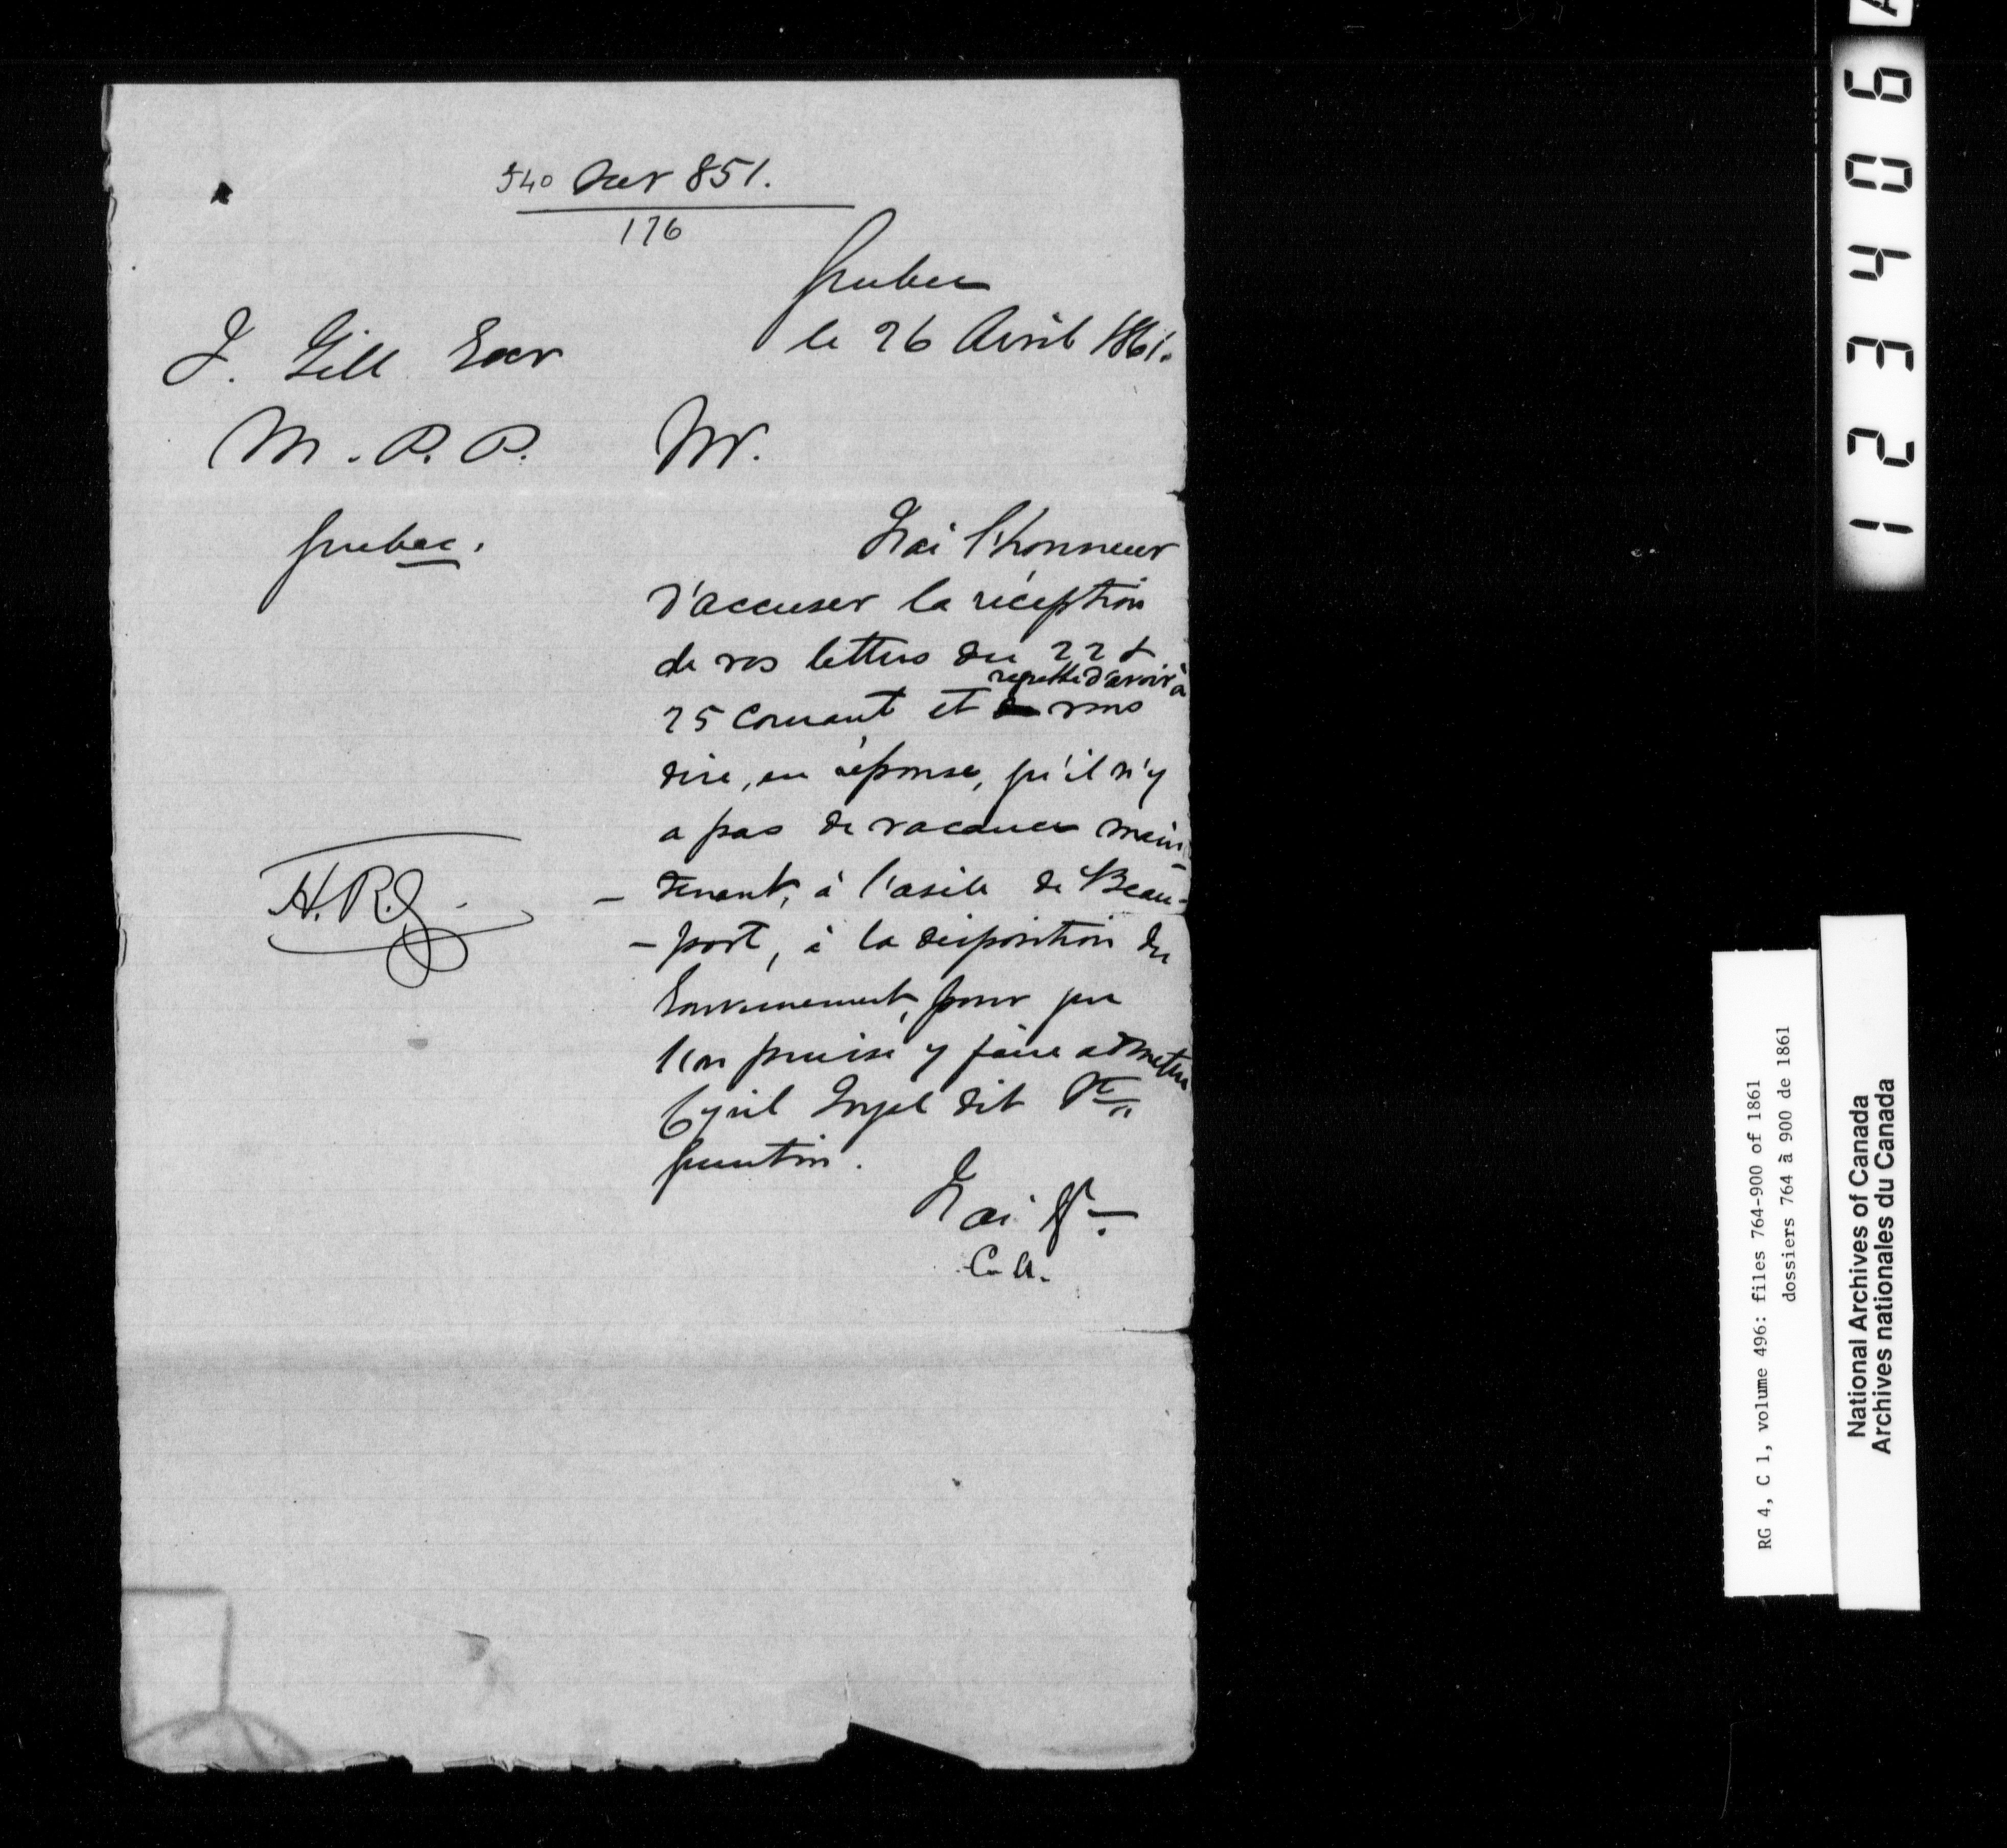 540 sur 851.
176
Quebec
le 26 Avril 1861.
I. Gill Ecr
M.P.P.
Quebec.
Mr.
J'ai l'honneur
d'accuser la réception
de vos lettres du 22 &
regrette d'avoir à
25 courant et vous
dire, en réponse, qu'il n'y
a pas de vacance main-
-tenant, à l'asile de Beau-
-port, à la disposition du
Gouvernement, pour que
l'on puisse y faire admettre
Cyril dit St
Quentin.
J'ai &c.
C.A.
H.R.
1 2 3 4 0 6
RG 4, C 1, volume 496: files 764-900 of 1861
dossiers 764 à 900 de 1861
National Archives of Canada
Archives nationales du Canada